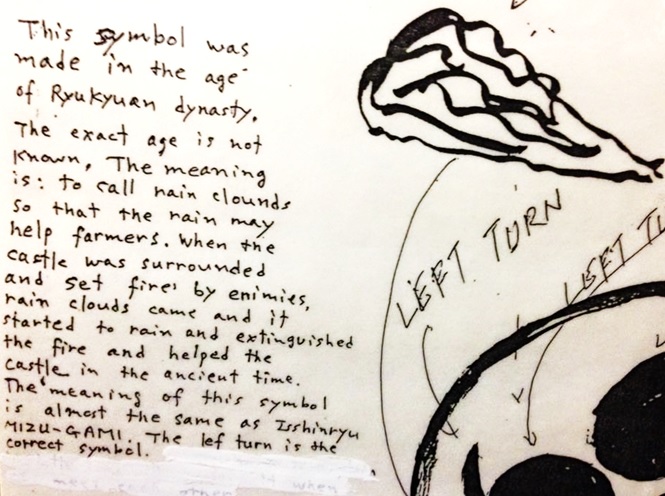 This symbol was
made in the age
of Ryukyuan dynasty.
The exact age is not
known. The meaning
is: to call rain clounds
so that the rain may
help farmers. When the
castle was surrounded
and set fire by enimies,
rain clouds came and it
started to rain and extinguished
the fire and helped the
castle in the ancient time.
The meaning of this symbol
is almost the same as Isshinryu
MIZU-GAMI. The lef turn is the
correct symbol.
LEFT TURN
LEFT TU